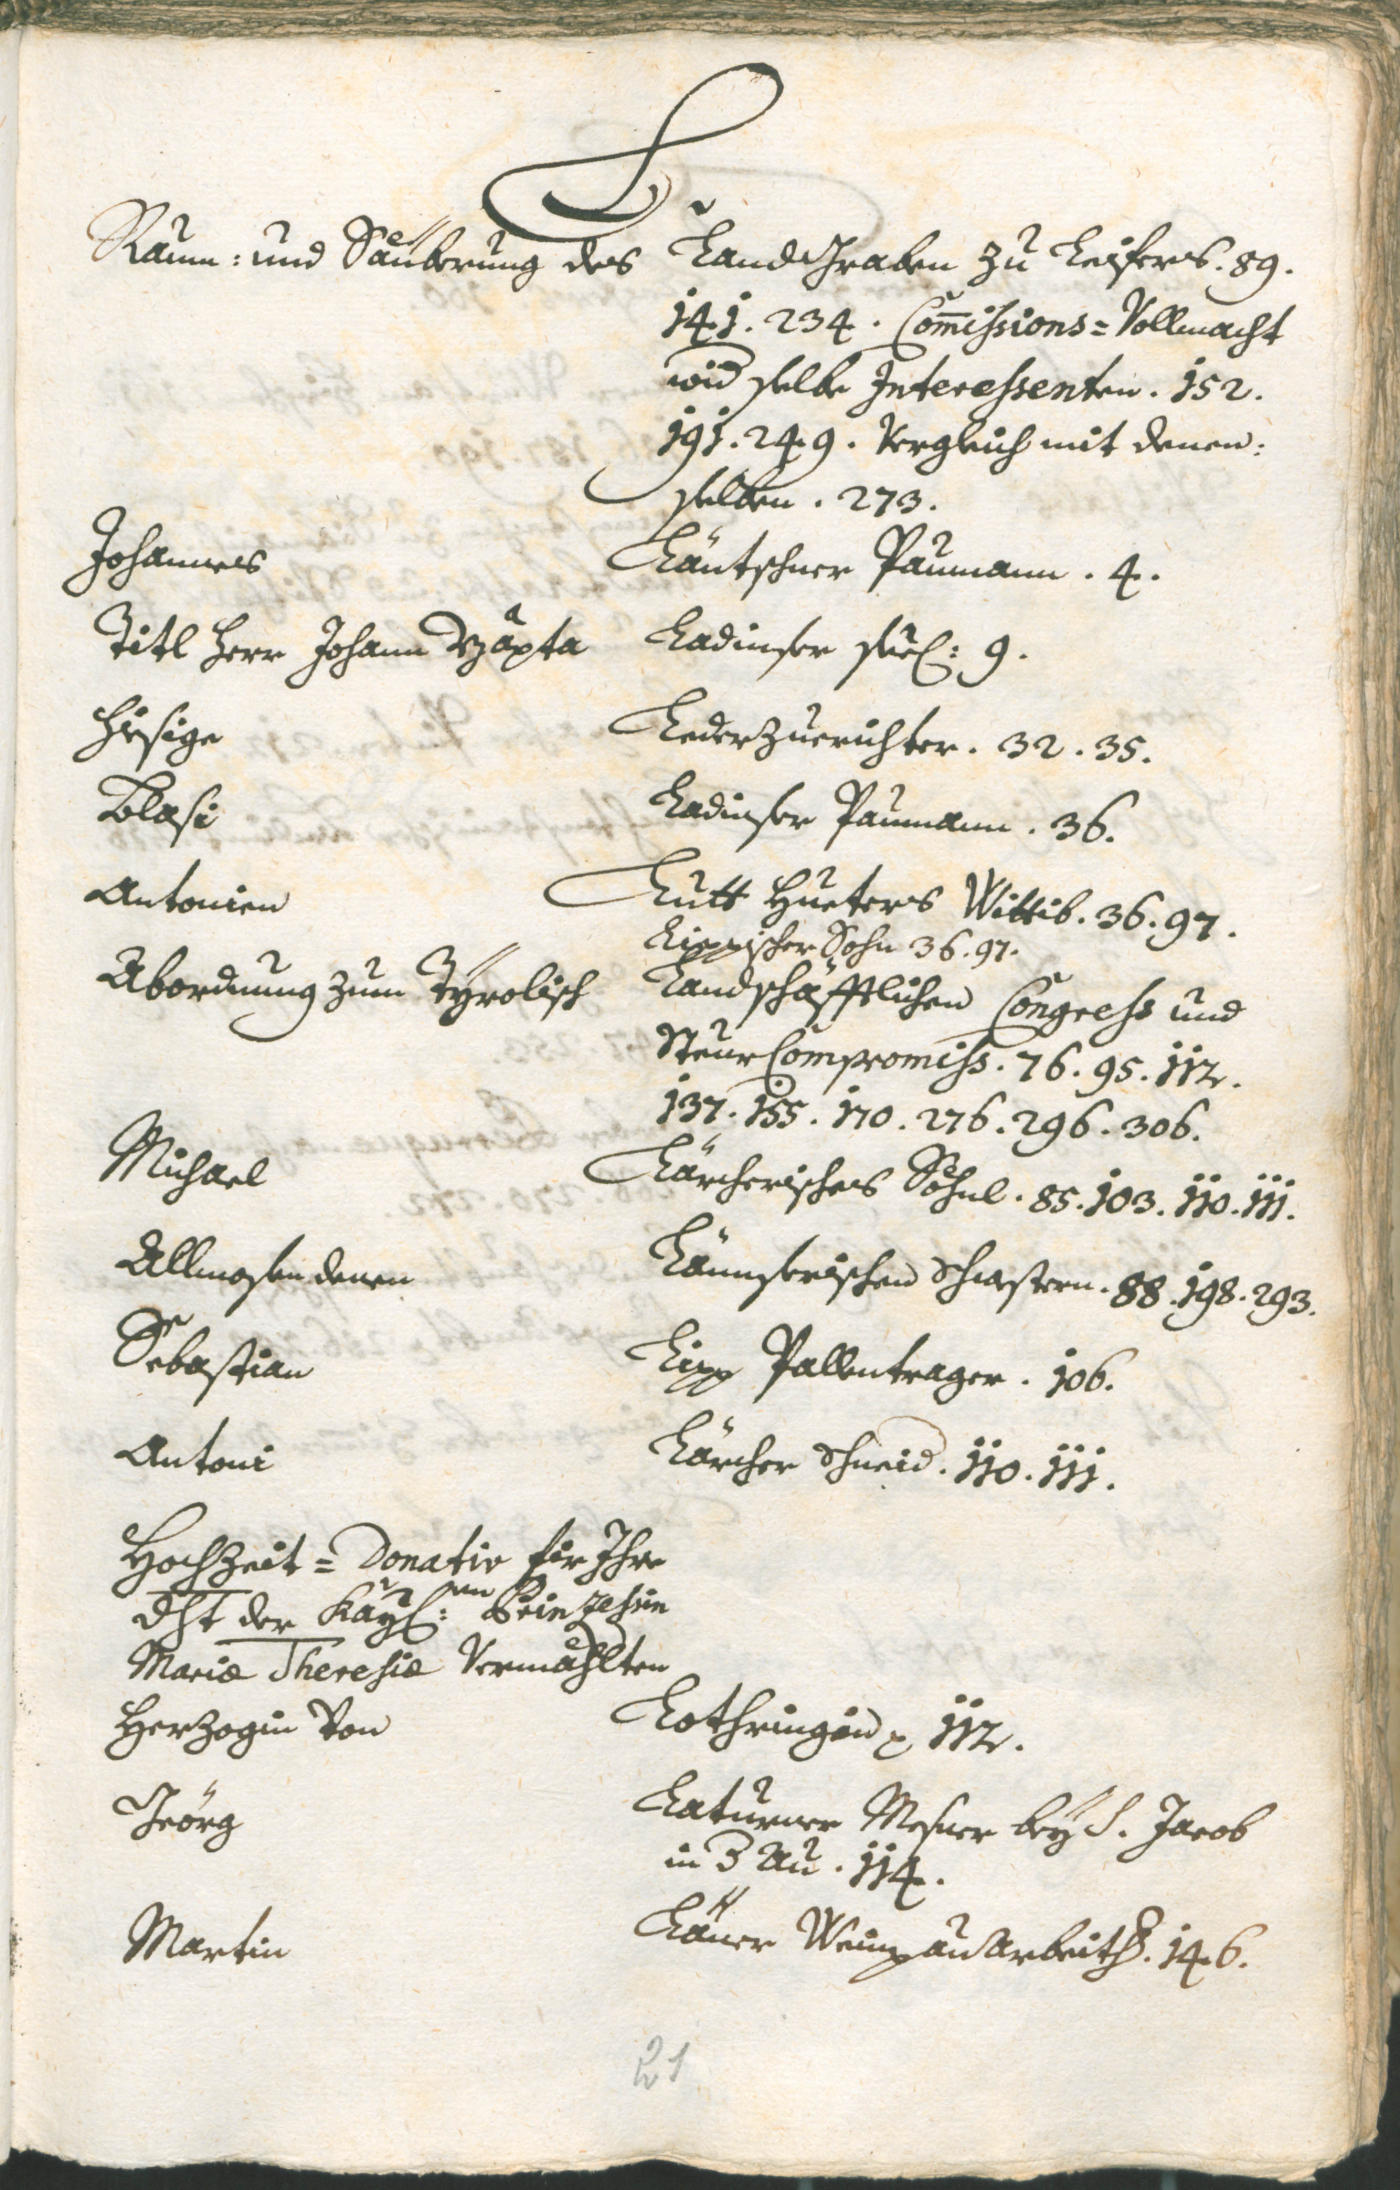 L
Raum: und Säuberung des Landtgraben zu Leifers. 89.
141. 234. Com̅issions=Vollmacht
wid selbe Interessenten. 152.
191. 249. Vergleich mit denen:
selben. 273.
Johannes Läntschner Paumann. 4.
Titl Herr Johann Bapta Ladinser seel: 9.
Hiesige Lederzuerichter. 32. 35.
Blasi Ladinser Paumann. 36.
Antonien Lutt Hueters Wittib. 36. 97.
Lippischer Sohn 36. 97.
Abordnung zum Tyrolisch Landschäfftlichen Congress und
Steur Compromiss. 76. 95. 112.
137. 155. 170. 276. 296. 306.
Michael Lärcherisches Söhnl. 85. 103. 110. 111.
Allmosen denen Länserischen Schwestern. 88. 198. 293.
Sebastian Lipp Pallentrager. 106.
Antoni Lärcher Schneid. 110. 111.
Hochzeit=Donativ für Ihre
Dht der Kayl: Prinzessin
Mariæ Theresiæ Vermählten
Herzogin Von Lothringen 112.
Geörg Laturner Messner bey S. Jacob
in der Au. 114.
Martin Läner Weinpau Arbeiths. 146.
21